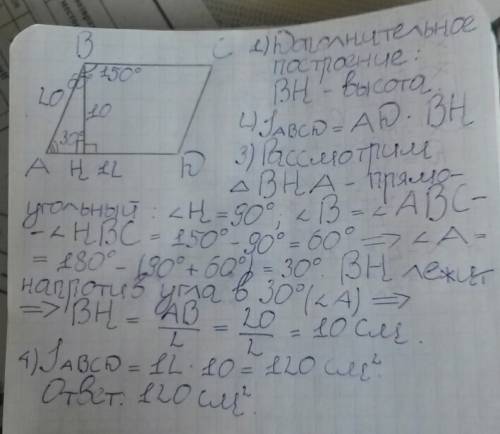 B C
150°
20
10
30°
A H 12 D
1) Дополнительное
построение:
BH - высота.
2) SABCD = AD · BH
3) Рассмотрим
△ BHA - прямо-
угольный: ∠H = 90°; ∠B = ∠ABC -
- ∠HBC = 150° - 90° = 60° => ∠A =
= 180° - (90° + 60°) = 30°. BH лежит
напротив угла в 30° (∠A) =>
=> BH = AB/2 = 20/2 = 10 см.
4) SABCD = 12 · 10 = 120 см²
Ответ: 120 см².